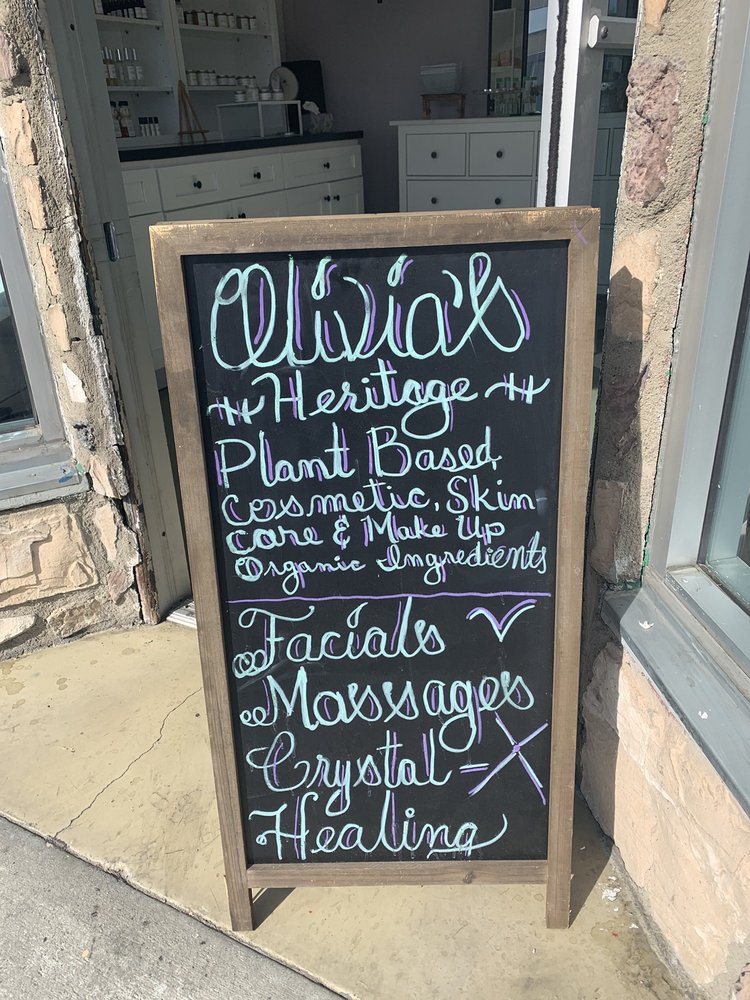 Olivia's
Heritage
Plant Based
Cosmetic, Skin
care & Make Up
Organic Ingredients
Facials
Massages
Crystal -
Healing